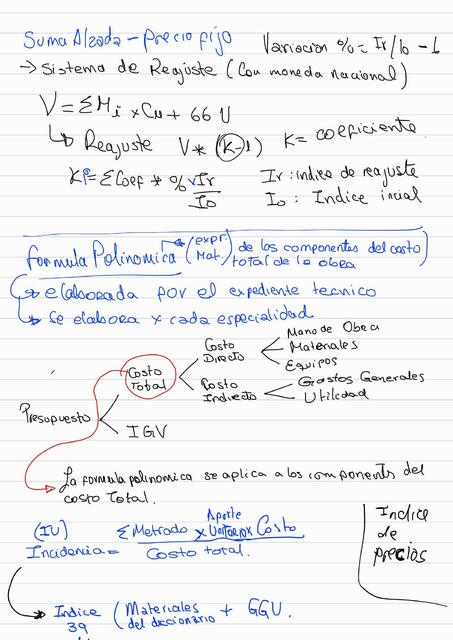 Suma Alzada - precio fijo
Variacion % = Ir/Io - 1
→ Sistema de Reajuste (Con moneda nacional)
V = ΣMi x Cu + GGU
↳ Reajuste V * (K-1) K = coeficiente.
K = ΣCoef * % v Ir/Io
Ir : indice de reajuste
Io : Indice incial
formula Polinomica (expr. Mat.) de los componentes del costo total de la obra
↳ elaborada por el expediente tecnico
↳ Se elabora x cada especialidad
Presupuesto
Costo Total
Costo Directo
Mano de Obra
Materiales
Equipos
Costo Indirecto
Gastos Generales
Utilidad
IGV
La formula polinomica se aplica a los components del
costo Total.
(IU)
Incidencia = Σ Metrado x Aporte Unitario x Costo
Costo total.
Indice
de
precios
→ Indice (Materiales + GGU.
39 del diccionario